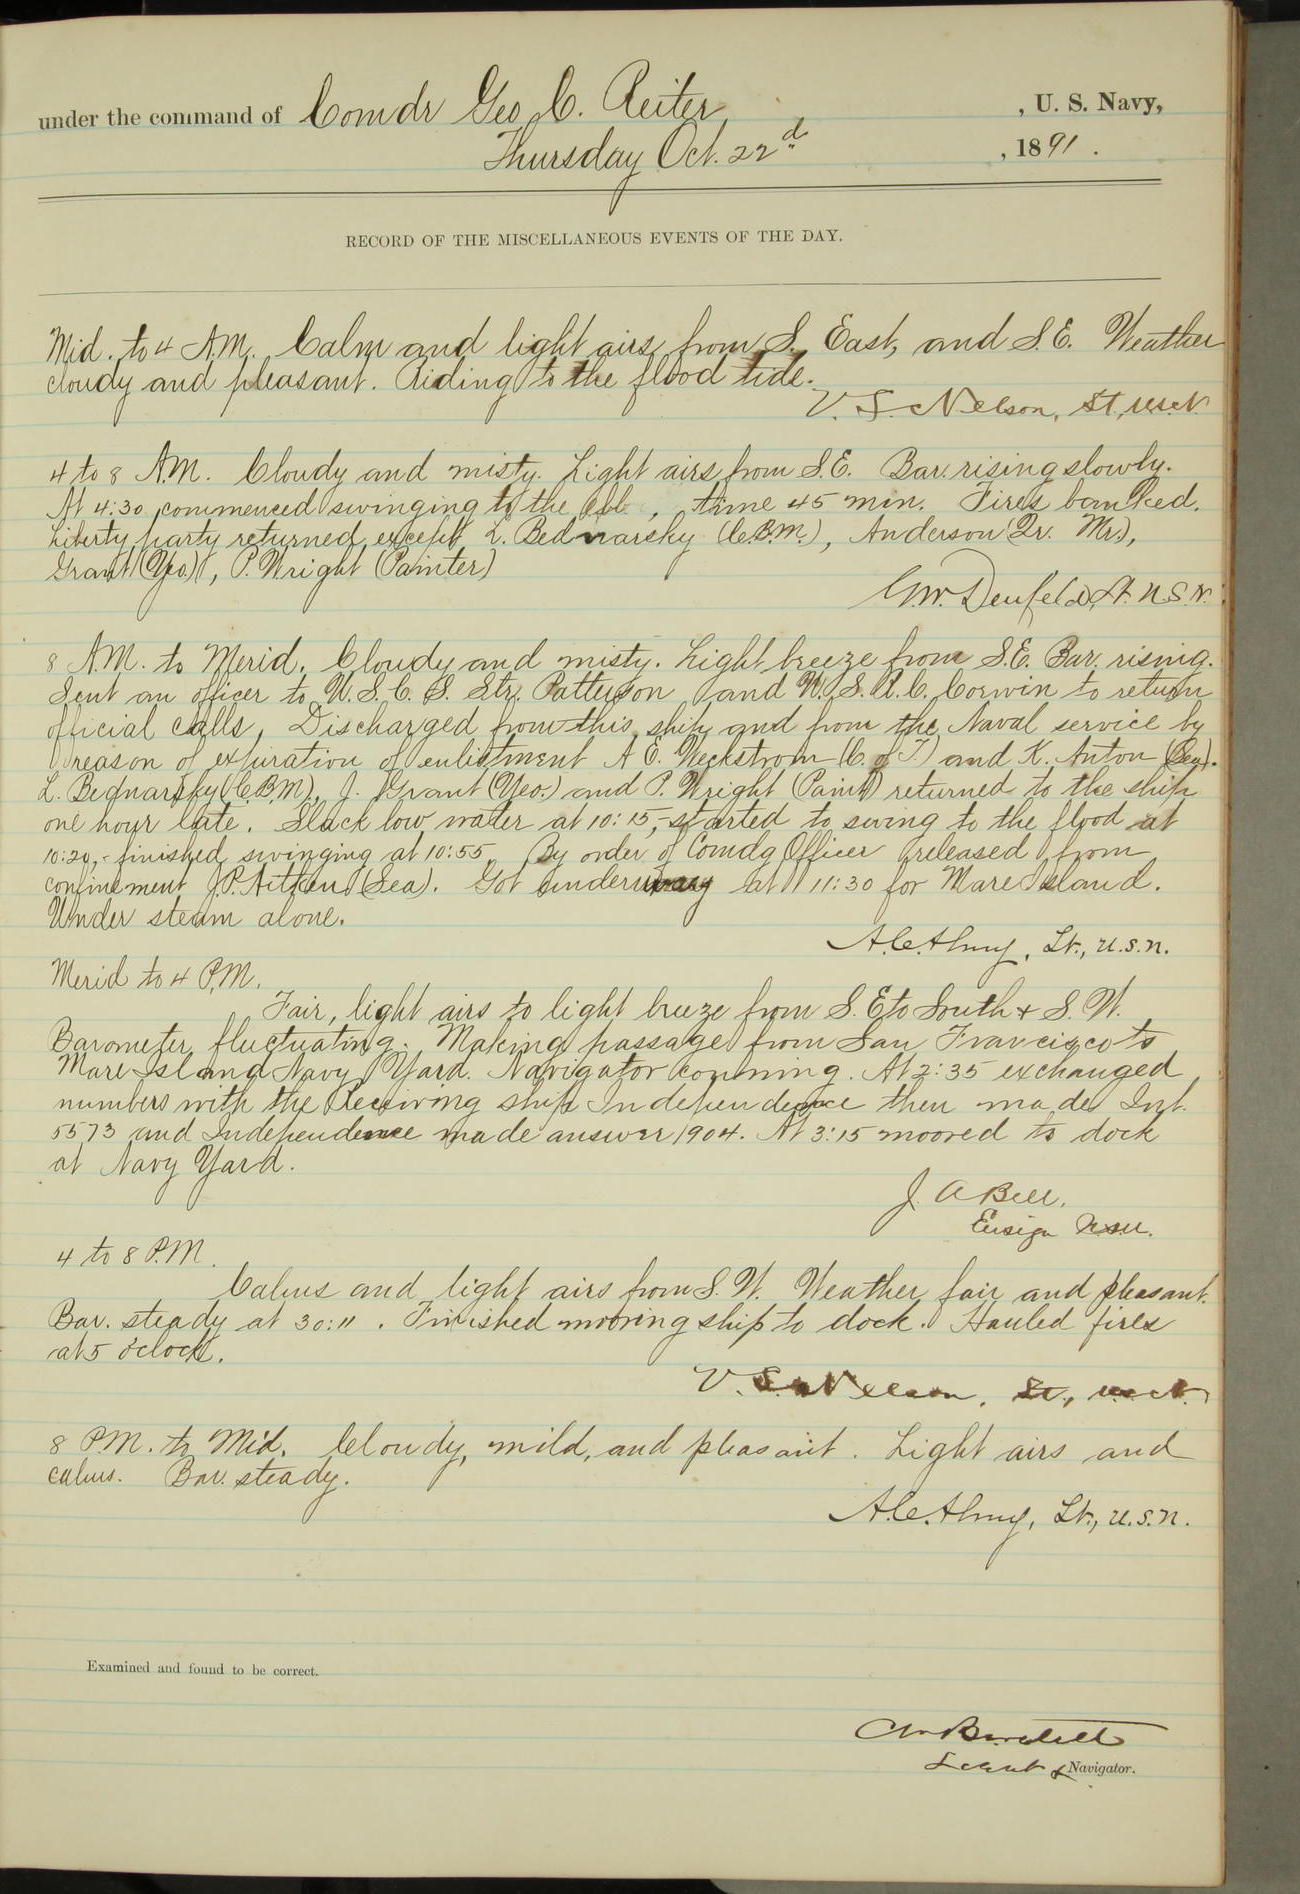 under the command of Comdr Geo. C. Reiter, U. S. Navy,
Thursday Oct. 22d, 1891.
RECORD OF THE MISCELLANEOUS EVENTS OF THE DAY.
Mid. to 4 A.M. Calm and light airs from S. East, and S.E. Weather
cloudy and pleasant. Riding to the flood tide.
V. S. Nelson, Lt, U.S.N.
4 to 8 A.M. Cloudy and misty. Light airs from S.E. Bar. rising slowly.
At 4:30 commenced swinging to the ebb, time 45 min. Fires banked.
Liberty party returned except L. Bednarsky (C.B.M.), Anderson (Qr. Mr.),
Grant (Yeo.), P. Wright (Painter)
G.W. Denfeld, Lt. U.S.N.
8 A.M. to Merid. Cloudy and misty. Light breeze from S.E. Bar. rising.
Sent an officer to U. S. C. S. Str. Patterson and U. S. R. C. Corwin to return
official calls. Discharged from this ship and from the Naval service by
reason of expiration of enlistment A. E. Weckstrom (C. of T.) and K. Anton (Sea).
L. Bednarsky (C.B.M), J. Grant (Yeo.) and P. Wright (Paint) returned to the ship
one hour late. Slack low water at 10:15,- started to swing to the flood at
10:20,- finished swinging at 10:55. By order of Comdg Officer released from
confinement J.P. Aitken (Sea). Got underway at 11:30 for Mare Island.
Under steam alone.
A.C. Almy, Lt., U.S.N.
Merid to 4 P.M.
Fair, light airs to light breeze from S.E to South & S. W.
Barometer fluctuating. Making passage from San Francisco to
Mare Island Navy Yard. Navigator conning. At 2:35 exchanged
numbers with the Receiving ship Independence then made Int.
5573 and Independence made answer 1904. At 3:15 moored to dock
at Navy Yard.
J. A Bell,
Ensign U.S.N.
4 to 8 P.M.
Calms and light airs from S. W. Weather fair and pleasant.
Bar. steady at 30:11. Finished mooring ship to dock. Hauled fires
at 5 o'clock.
V. S. Nelson, Lt., U.S.N.
8 P.M. to Mid. Cloudy, mild, and pleasant. Light airs and
calms. Bar. steady.
A.C. Almy, Lt., U.S.N.
Examined and found to be correct.
Lieut & Navigator.